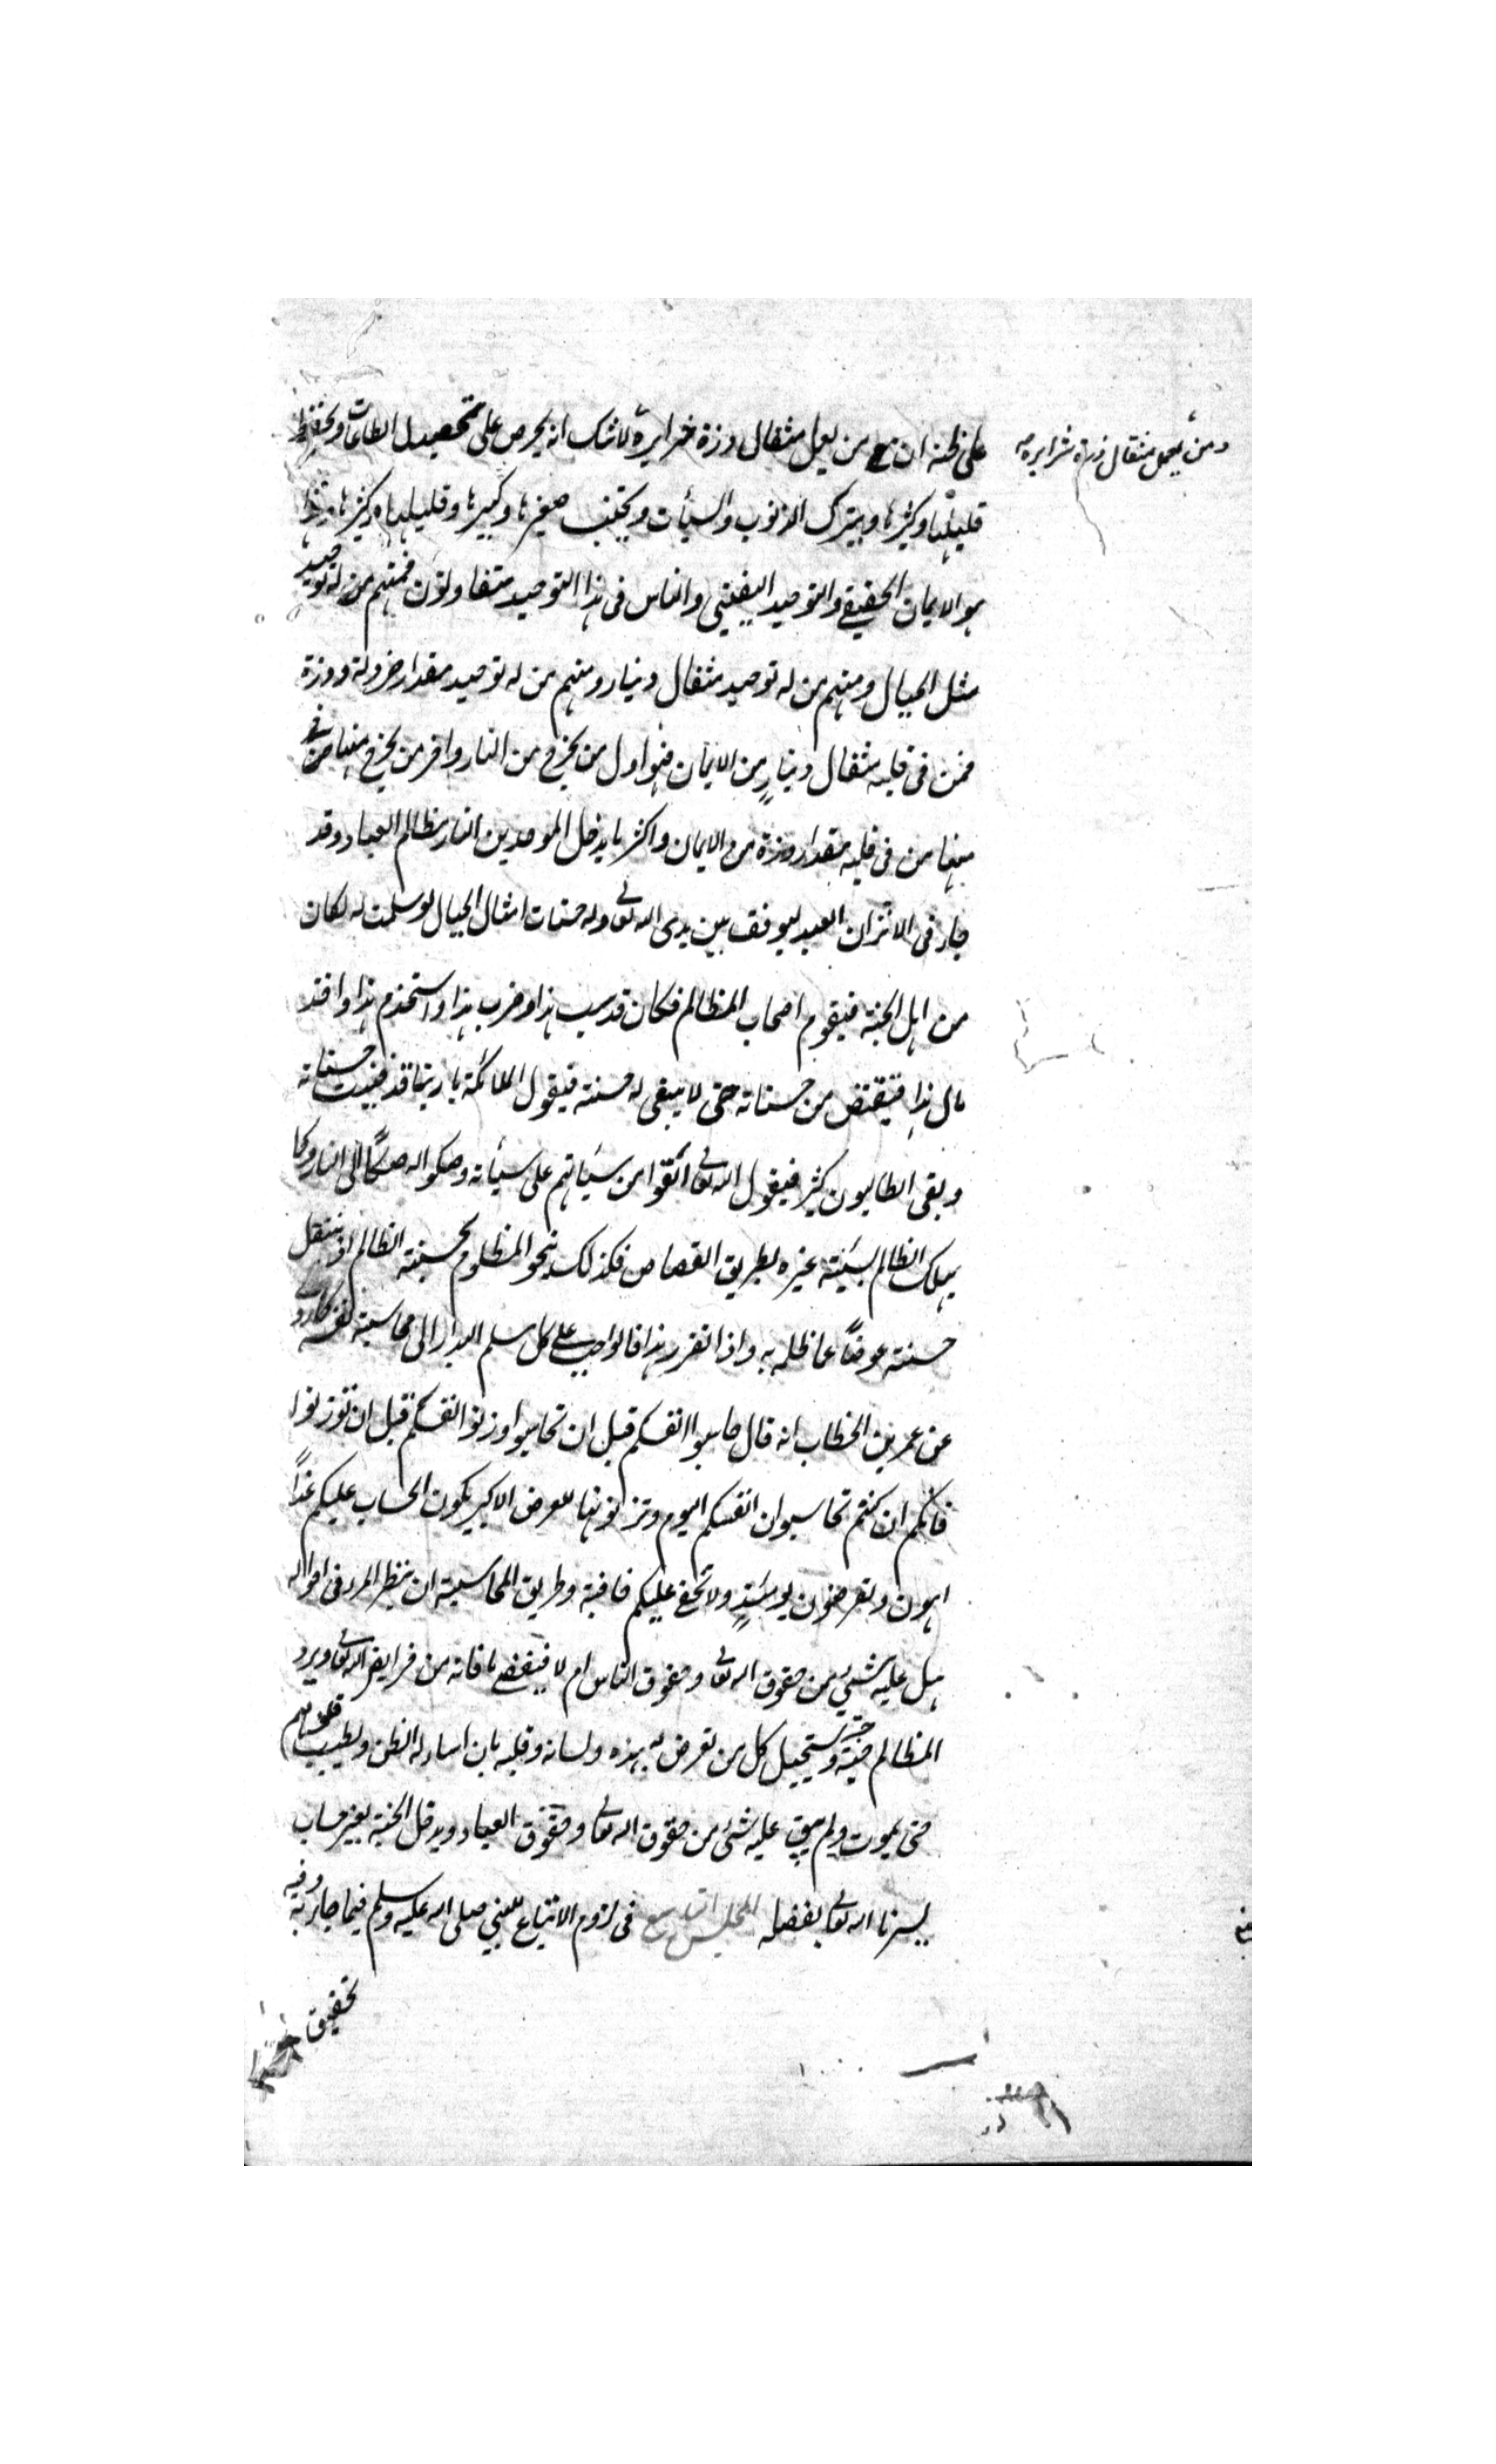 ومن يعمل مثقال ذرة شرا يره
على ظنه ان من يعمل مثقال ذرة خيرا يره لا شك انه يحرص على تحصيل الطاعات ويحفظ
قليلها وكثيرها ويترك الذنوب والسيأت ويجتنب صغيرها وكبيرها وقليلها وكثيرها وهذا
هو الايمان الحقيقي والتوحيد اليقيني والناس في هذا التوحيد متفاوتون فمنهم من له توحيد
مثل الجبال ومنهم من له توحيد مثقال دينار ومنهم من له توحيد مقدار خردلة وذرة
فمن في قلبه مثقال دينارٍ من الايمان فهو اول من يخرج من النار واخر من يخرج منها من في
من في قلبه مقدار ذرة من الايمان واكثر ما يدخل الموحدين النار مظالم العباد وقد
جاء في الاثر ان العبد ليوقف بين يدي الله تعالى وله حسنات امثال الجبال لو سلمت له لكان
من اهل الجنة فيقوم اصحاب المظالم فكان قد سب هذا وضرب هذا واستخدم هذا واخذ
مال هذا فيقتص من حسناته حتى لا يبقى له حسنة فيقول الملائكة يا ربنا قد فنيت حسناته
وبقى الطالبون كثير فيقول الله تعالى القوا من سيئاتهم على سيئاته وصكوا له صكًا الى النار وكما
يهلك الظالم بسيئة غيره بطريق القصاص فكذلك ينجو المظلوم بحسنة الظالم اذ ينتقل
حسنته عوضًا عما ظلم به واذا تقرر هذا فالواجب على كل مسلم البدار الى محاسبة نفسه كما روى
عن عمر بن الخطاب انه قال حاسبوا انفسكم قبل ان تحاسبوا وزنوا انفسكم قبل ان توزنوا
فانكم ان كنتم تحاسبوان انفسكم اليوم وتزنونها للعرض الاكبر يكون الحساب عليكم غدًا
اهون وتعرضون يومئذٍ ولا تخفى عليكم خافية وطريق المحاسبة ان ينظر المرء في احواله
هل عليه شيئ من حقوق الله تعالى وحقوق الناس ام لا فيقضى ما فاته من فرايض الله تعالى ويرد
المظالم حبة حبة ويستحيل كل من تعرض له بيده ولسانه وقلبه بان اساء له الظن ويطيب قلوبهم
حتى يموت ولم يبق عليه شئ من حقوق الله تعالى وحقوق العباد ويدخل الجنة بغير حساب
يسرنا الله تعالى بفضله المجلس التاسع في لزوم الاتباع للنبي صلى الله عليه وسلم فيما جاء به وفيه
تحقيق